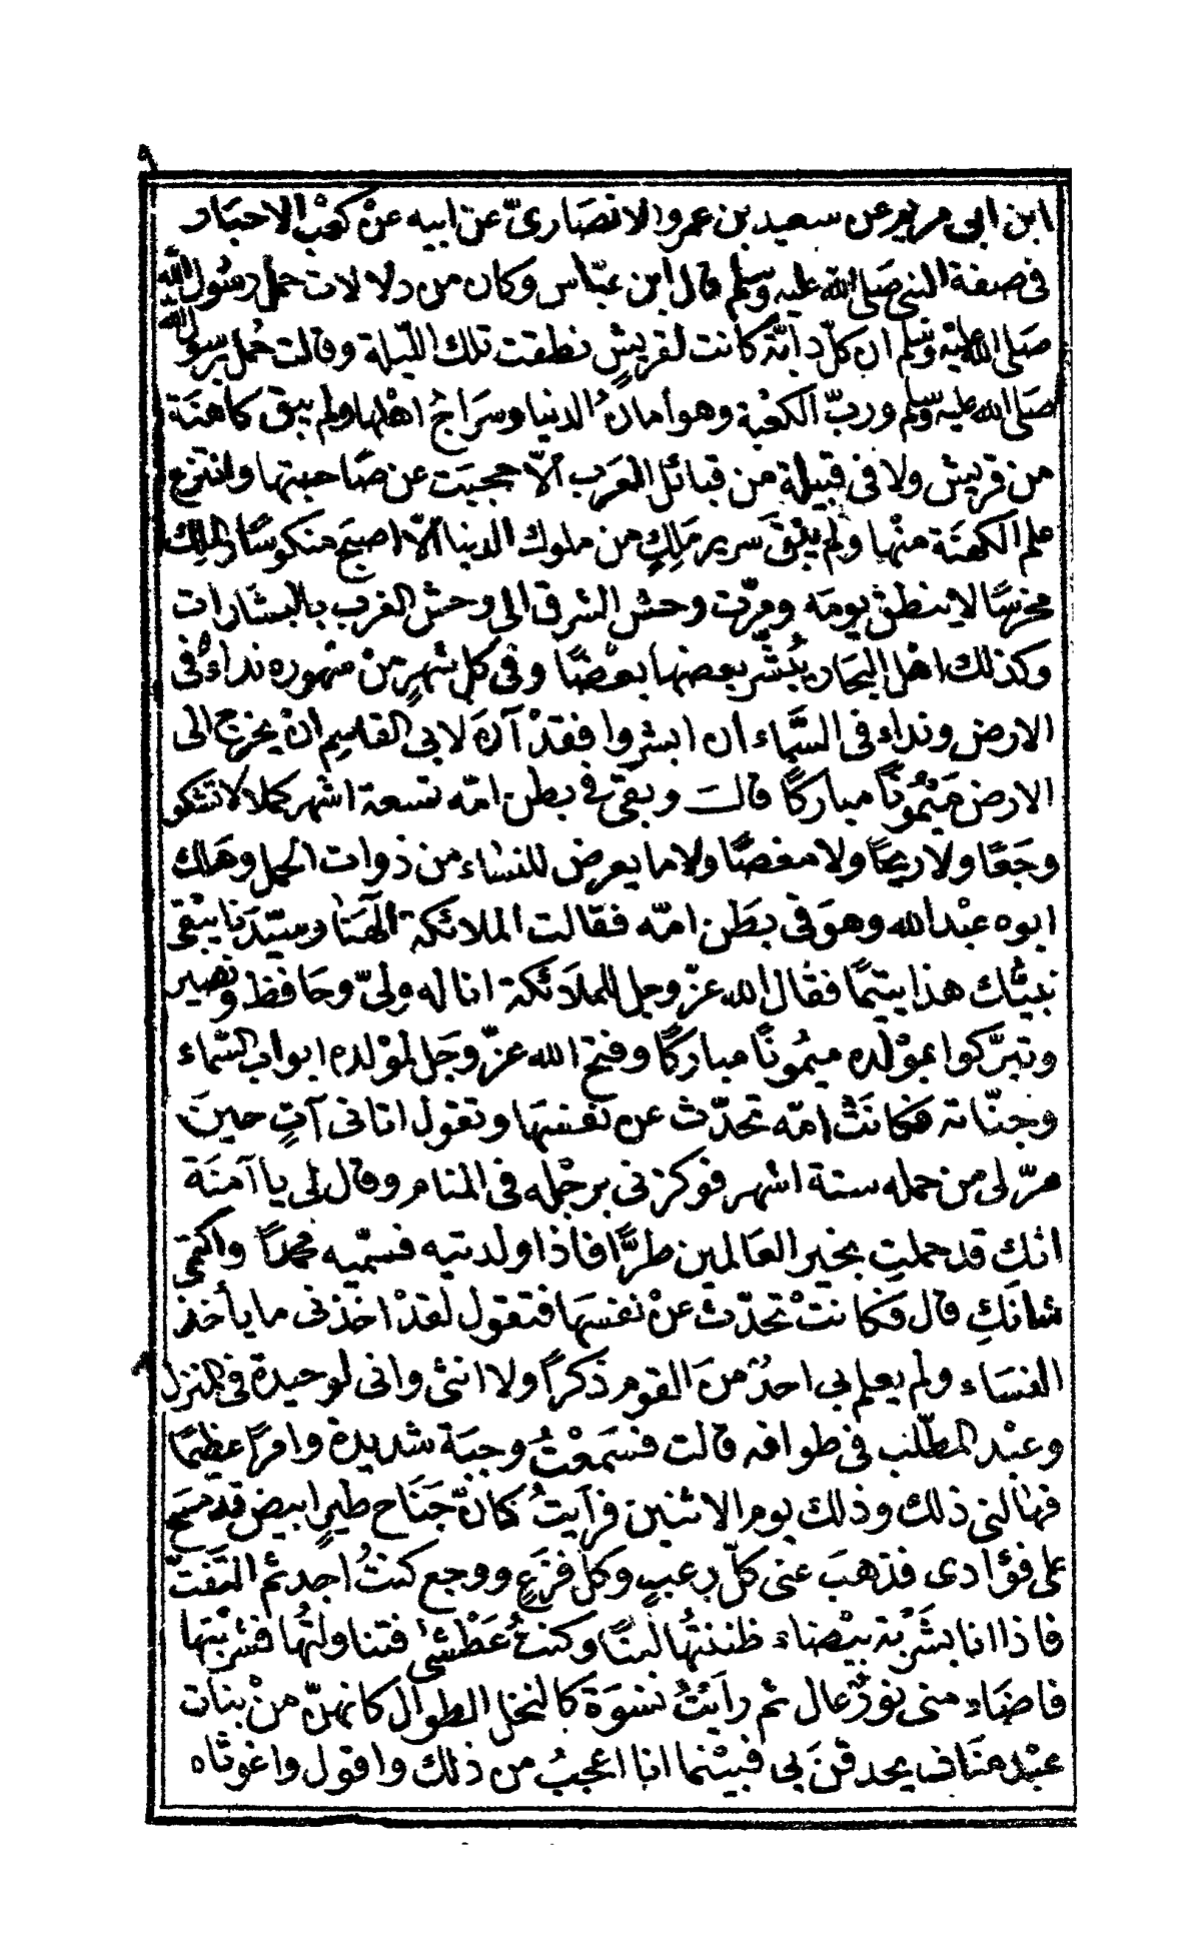 ٩
ابن ابى مريم عن سعيد بن عمرو الانصارىّ عن ابيه عن كعْب الاحبَار
فى صفة النبى صَلى الله عليه وسلم قال ابن عبّاس وكان من دلالات حمل رسُول الله
صَلى الله عليْه وسلم ان كلّ دابّة كانت لقريشٍ نطقت تلك اللّيلة وقالت حُمل برسول الله
صَلى الله عليه وسلم وربّ الكعْبة وهو أمان الدنيا وسرَاجُ اهْلها ولم يبق كاهنَة
من قريش ولا فى قبيلة من قبائل العَرب الّا حجبَت عن صَاحبتها وانتزع
علم الكهنَة منْها ولم يبْقَ سرير مَلِكٍ من ملوك الدنيا الّا اصبَح منكوسًا والملك
مخرسًا لا ينطق يومَه ومرّت وحش الشرق الى وحش الغرب بالبشارات
وكذلك اهْل البحَار يُبُشّر بعضها بعْضًا وفى كل شهرٍ منْ شهوره نداءٌ فى
الارض ونداء فى السَّماء ان ابشروا فقدْ آنَ لابى القاسِم انْ يخرج الى
الارض مَيْمُونًا مباركًا قالت وبقى فى بطن امّه تسعة اشهر كملا لا تشكو
وجَعًا ولا ريحًا ولا مغصًا ولا ما يعرض للنساء من ذوات الحمل وهَلك
ابوه عبْد الله وهوَ فى بطَن امّه فقالت الملائكة الَهنَا وسيّدَنا يبْقى
نبيّك هذا يتيمًا فقال الله عزّ وجل للملَائكة انا له ولىّ وحَافظ ونصير
وتبرَّكوا بموْلده ميمُونًا مباركًا وفتح الله عزّ وجَل لموْلده ابواب السّماء
وجنّاته فكانَتْ امّه تحدّث عن نفسهَا وتقول اتانى آتٍ حينَ
مرّ لى من حمله ستة اشهر فوكزنى برجْله فى المنام وقال لى يا آمنَة
انّك قد حملتِ بخير العَالمين طرًّا فاذا ولدتيه فسمّيه محمّدًا واكتمى
شانَكِ قال فكانتْ تحدّث عنْ نفسهَا فتقول لقدْ اخذنى ما يأخذ
النسَاء ولم يعلم بى احدٌ منَ القوم ذكرًا ولا انثى وانى لوحيدة فى المنزل
وعبْد المطّلب فى طوافه قالت فسَمعْتُ وجبَة شديدة وامرًا عظيمًا
فهالنى ذلك وذلك يوم الاثنين فرآيتُ كانّ جَنَاح طيرٍ ابيض قد مسَح
على فؤادى فذهبَ عنى كلّ رعبٍ وكل فزَعٍ ووجع كنتُ اجد ثم التفتّ
فاذا انا بشَرْبة بيْضاء ظننتُها لبنًا وكنتُ عَطْشى فتناولتُها فشربْتها
فاضَاء منى نورٌ عال ثم رايْتُ نسْوَة كالنخل الطوال كانهنّ منْ بنات
عبْد منَاف يحدقنَ بى فبيْنما انا اعجبُ من ذلك واقول واغوثاه